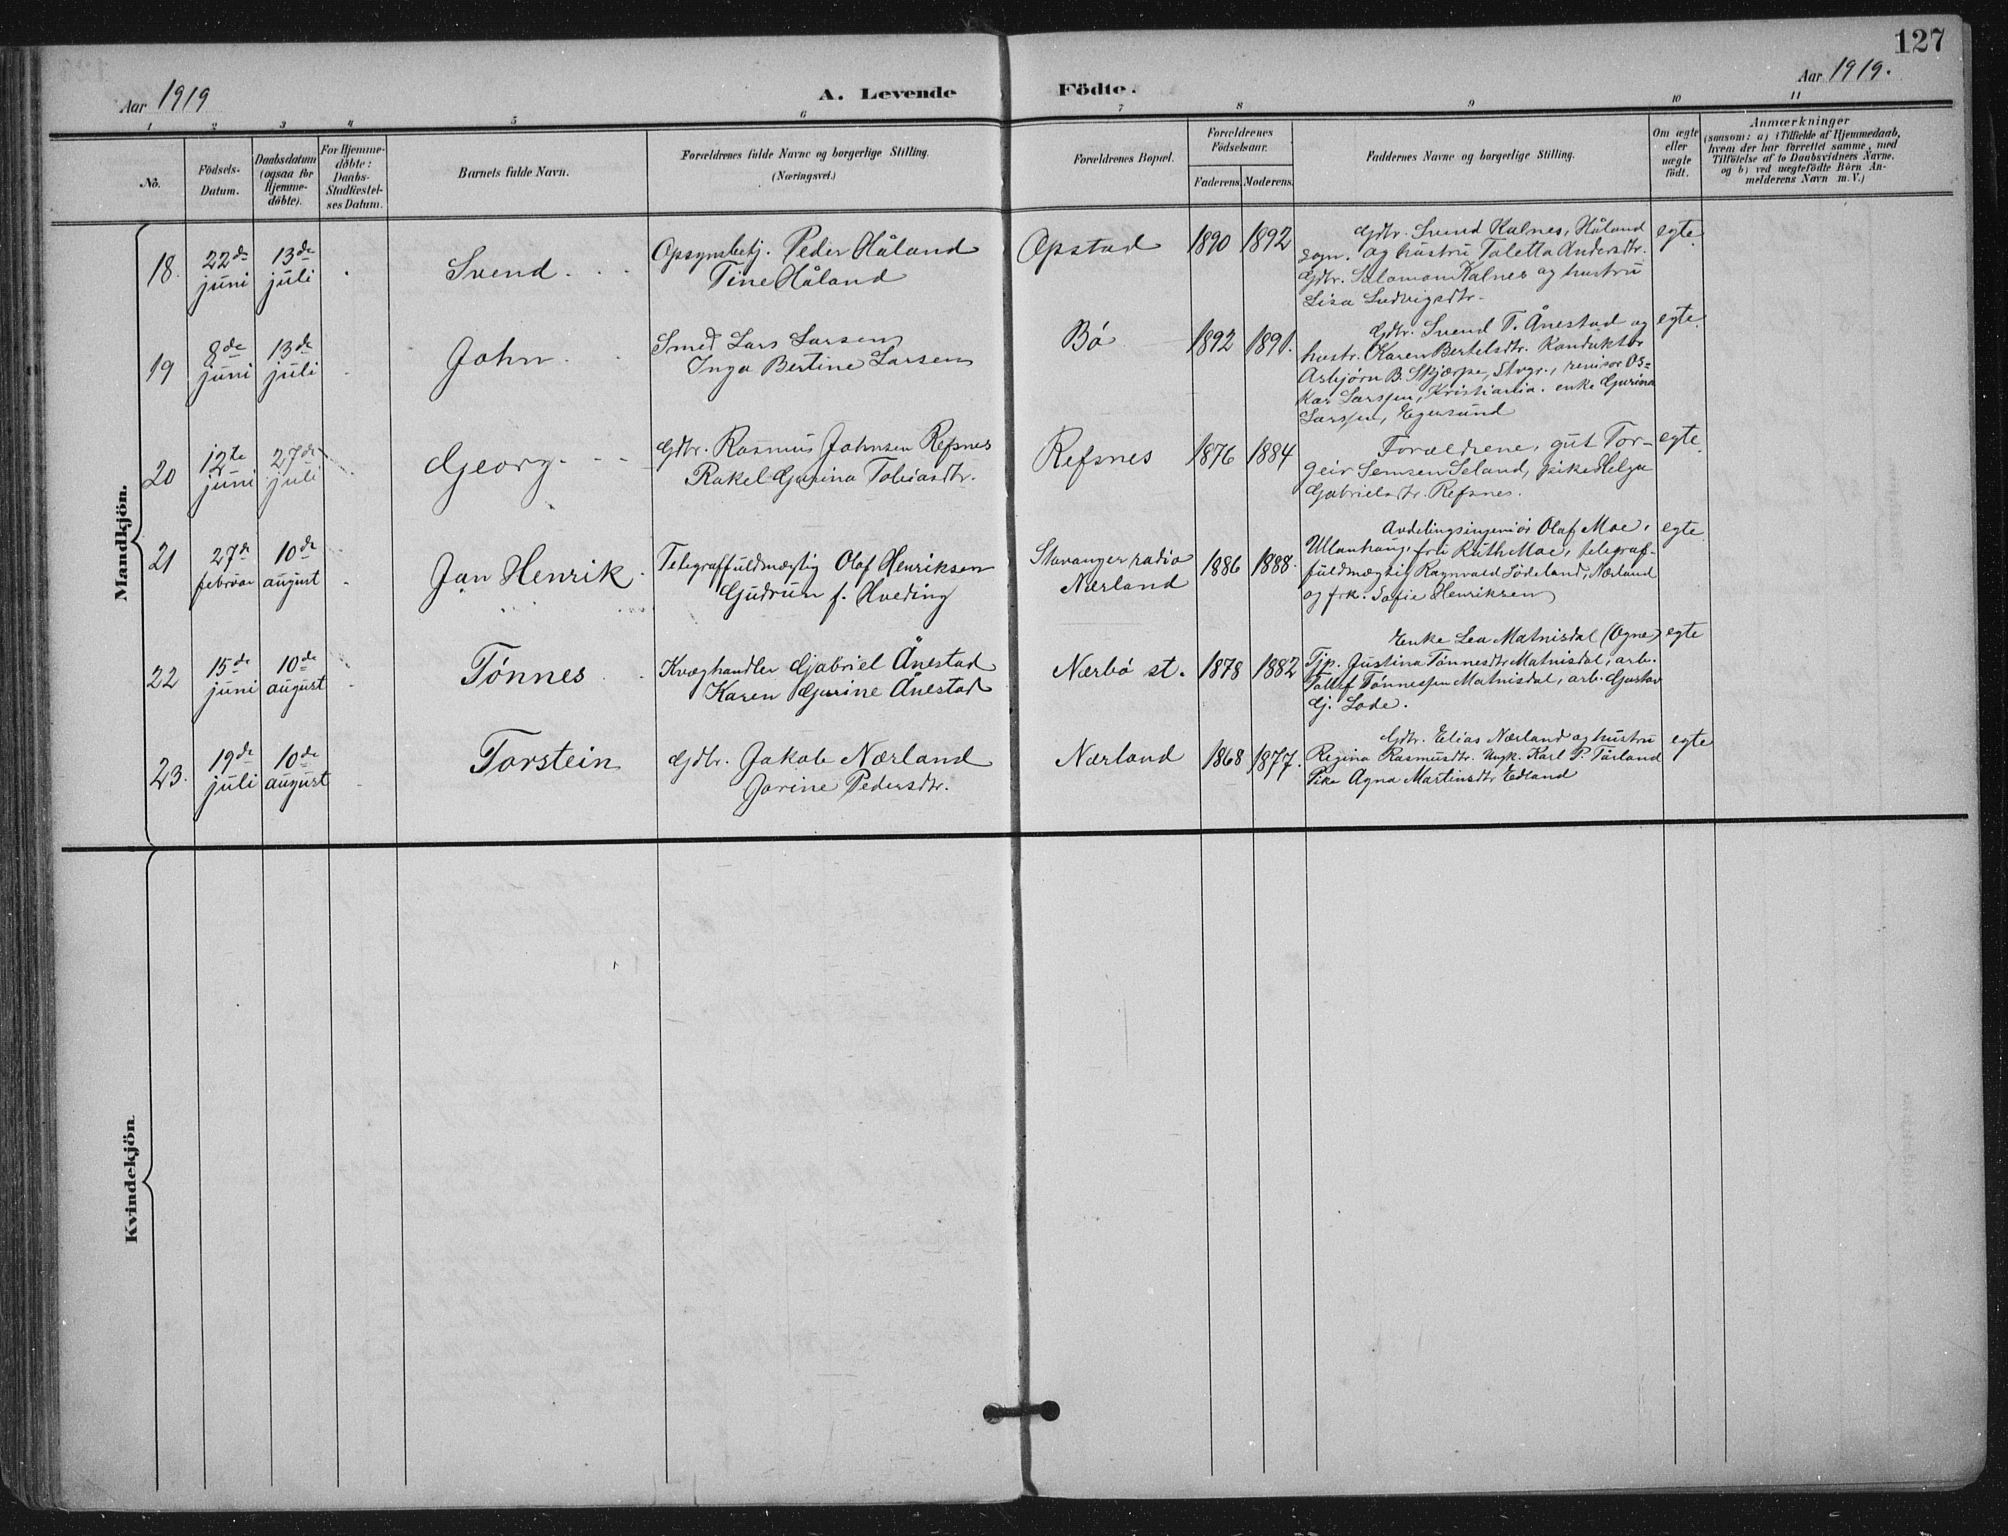 127
Aar 1919
A. Levende Födte.
Aar 1919.
1 2 3 4 5 6 7 8 9 10 11
No.
Födsels-
Datum.
Daabsdatum
(ogsaa for
Hjemme-
döbte).
For Hjemme-
döbte:
Daabs-
Stadfæstel-
ses Datum.
Barnets fulde Navn.
Forældrenes fulde Navne og borgerlige Stilling.
(Næringsvei.)
Forældrenes Bopæl.
Forældrenes
Födselsaar.
Faderens. Moderens.
Faddernes Navne og borgerlige Stilling.
Om ægte
eller
uægte
födt.
Anmærkninger
(saasom: a) i Tilfælde af Hjemmedaab,
hvem der har forrettet samme, med
Tilföielse af to Daabsvidners Navne.
og b) ved uægtefödte Börn An-
melderens Navn m. V.)
Mandkjön.
18.
22de
juni
13de
juli
Svend.
Opsynsbetj. Peder Håland
Tine Håland
Opstad
1890 1892
Gdbr. Svend Kalnes, Håland
sogn. og hustru Taletta Andersdtr.
Gdbr. Salamon Kalnes og hustru
Lisa Ludvigsdtr.
egte.
19
8de
juni
13de
juli
John.
Smed Lars Larsen
Inga Bertine Larsen
Bø
1892 1891.
Gdbr. Svend T. Ånestad og
hustr. Karen Bertelsdtr. Konduktør
Asbjørn B. Skjærpe, Stvgr., revisor Os-
kar Larssen, Kristiania. enke Gurina
Larssen, Egersund
egte.
20
12te
juni
27de
juli
Georg.
Gdbr. Rasmus Johnsen Refsnes
Rakel Gurina Tobiasdtr.
Refsnes
1876 1884
Forældrene, gut Tor-
geir Semsen Seland, pike Helga
Gabrielsdtr. Refsnes.
egte.
21
27de
februar
10de
august
Jan Henrik.
Telegraffuldmægtig Olaf Henriksen
Gudrun f. Hveding
Stavanger radio
Nærland
1886 1888.
Avdelingsingeniør Olaf Moe,
Ullanhaug, fru Ruth Moe, telegraf-
fuldmægtig Ragnvald Lødeland, Nærland
og frk. Sofie Henriksen
egte.
22
15de
juni
10de
august
Tønnes
Kvæghandler Gabriel Ånestad
Karen Gurine Ånestad
Nærbø st.
1878 1882
Enke Lea Matnisdal (Ogne)
Tjp. Justina Tønnesdtr Matnisdal, arb.
Tallef Tønnessen Matnisdal, arb. Gustav
Gj. Lode.
egte
23.
19de
juli
10de
august
Torstein
Gdbr. Jakob Nærland
Jorine Pedersdtr.
Nærland
1868 1877.
Gdbr. Elias Nærland og hustru
Regina Rasmusdtr. Ungk. Karl P. Tårland
Pike Agna Martinsdtr Edland
egte
Kvindekjön.